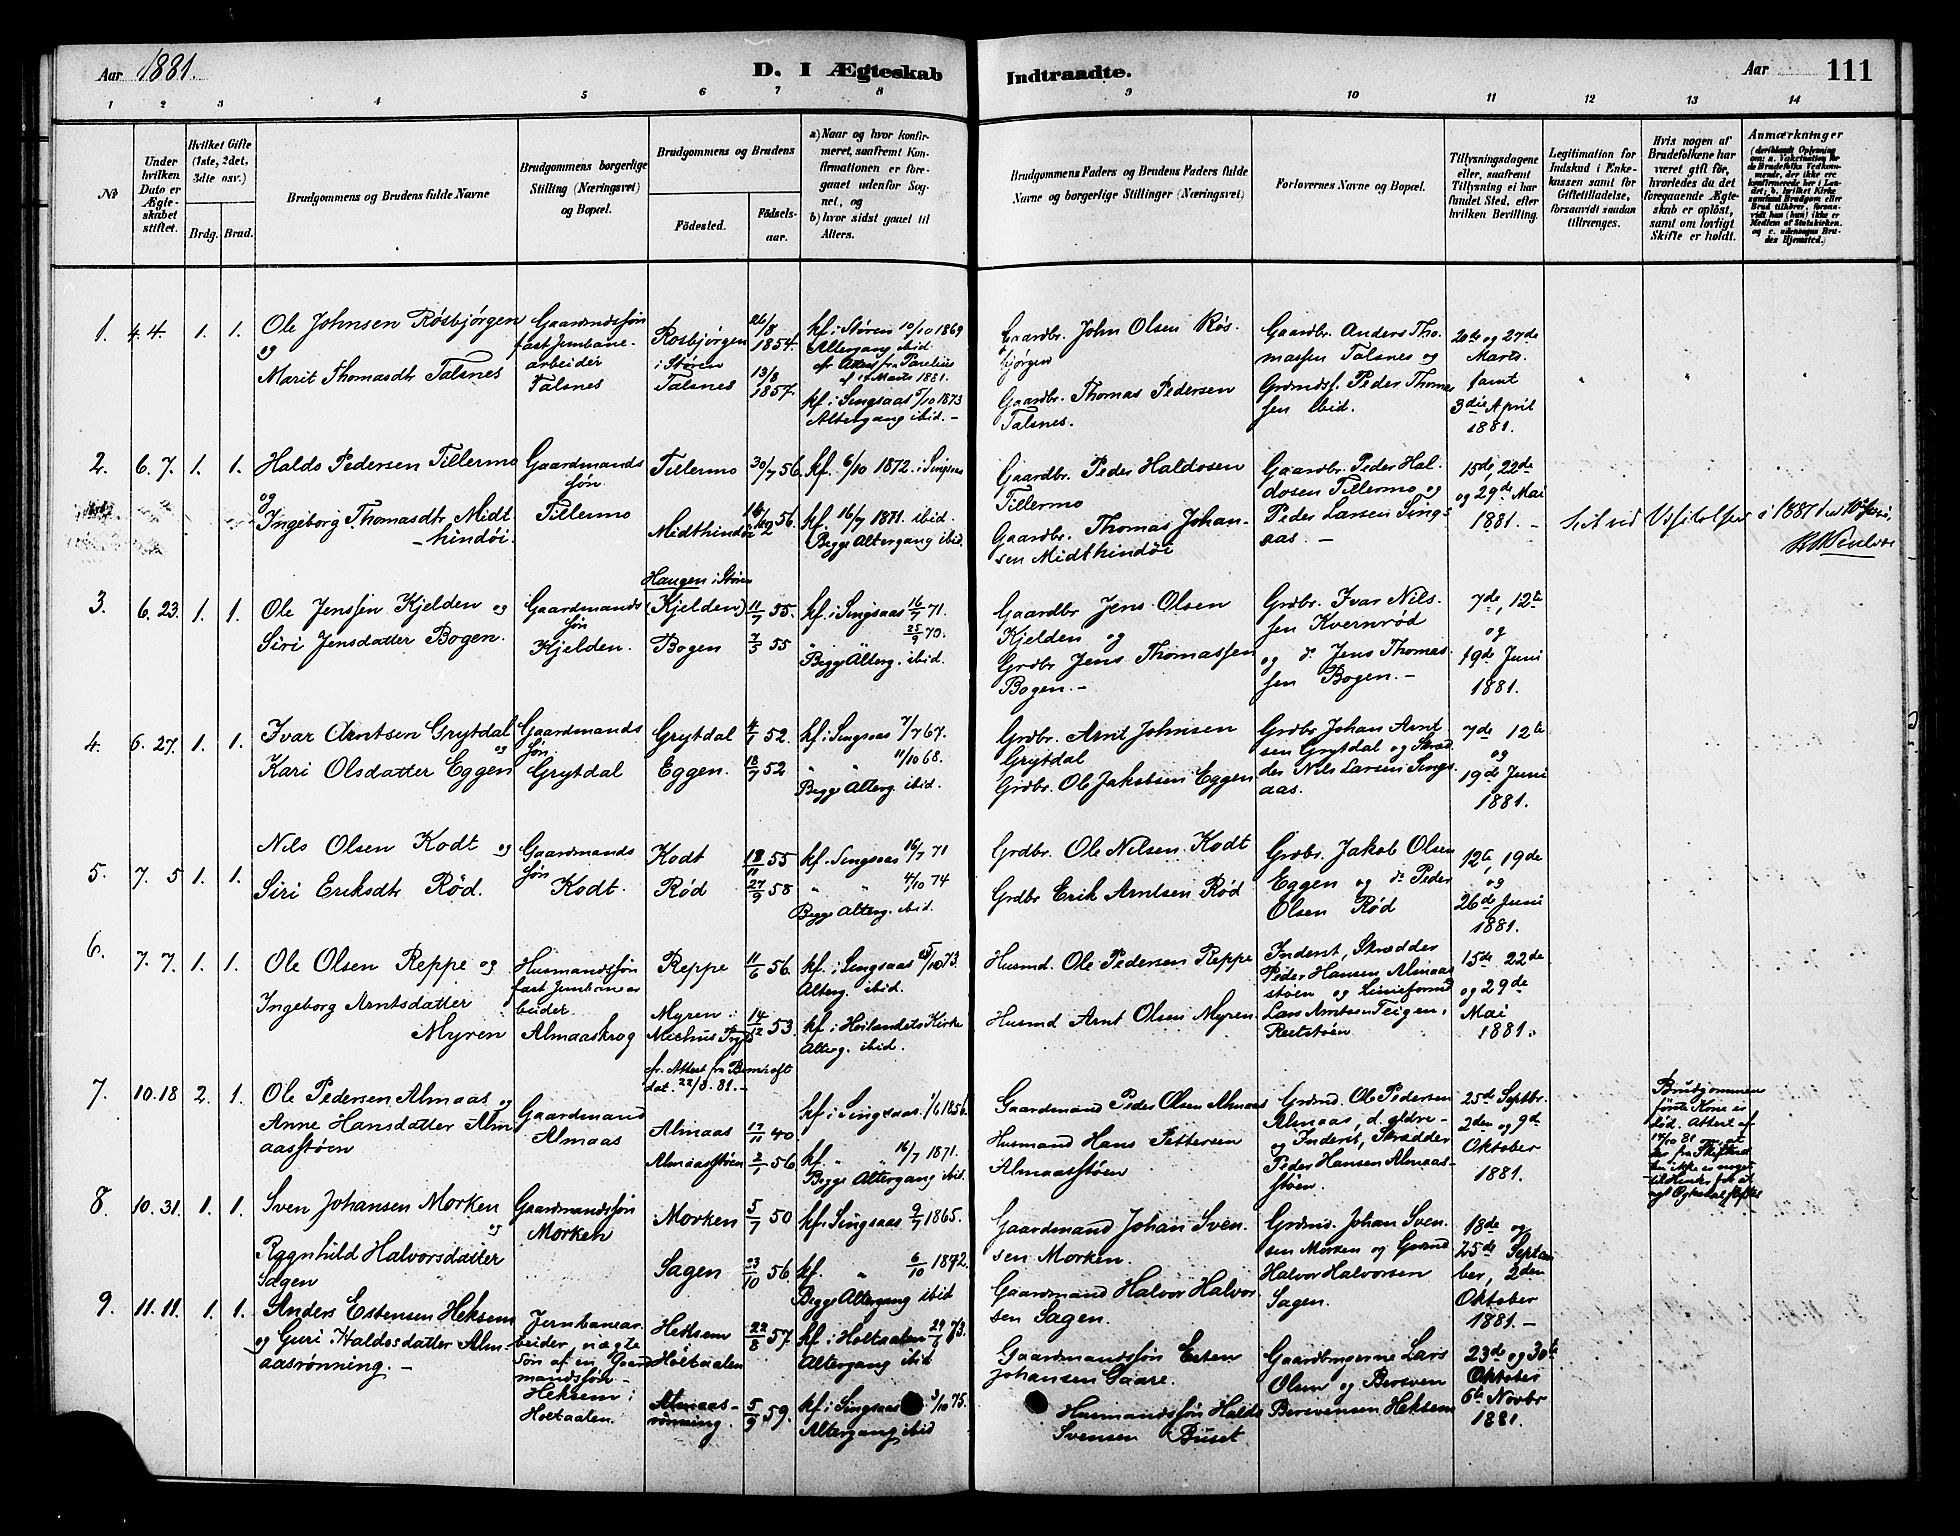 Aar 1881.
D. I Ægteskab
Indtraadte.
Aar
111
1 2 3 4 5 6 7 8 9 10 11 12 13 14
№
Under hvilken Dato er Ægteskabet stiftet.
Hvilket Gifte (1ste, 2det, 3dte osv.)
Brdg. Brud.
Brudgommens og Brudens fulde Navne
Brudgommens borgerlige Stilling (Næringsvei) og Bopæl.
Brudgommens og Brudens
Födested.
Födselsaar.
a) Naar og hvor konfirmeret, saafremt Konfirmationen er foregaaet udenfor Sognet, og
b) hvor sidst gaaet til Alters.
Brudgommens Faders og Brudens Faders fulde Navne og borgerlige Stillinger (Næringsvei)
Forlovernes Navne og Bopæl.
Tillysningsdagene eller, saafremt Tillysning ei har fundet Sted, efter hvilken Bevilling.
Legitimation for Indskud i Enkekassen samt for Giftetilladelse, forsaavidt saadan tiltrænges.
Hvis nogen af Brudefolkene har været gift för, hvorledes da det foregaaende Ægteskab er oplöst, samt om lovligt Skifte er holdt.
Anmærkninger
1. 4. 4. 1. 1.
Ole Johnsen Røsbjørgen
og
Marit Thomasdtr Talsnes
Gaardmdssøn
fast Jernbane-
arbeider
Talsnes
Rosbjørgen
i Støren
Talsnes
26/8
1854.
13/8
1857.
kf. i Støren 10/10 1869
Altergang ibid.
kf. i Singsaas 5/10 1873
Altergang ibid. –
Gaardbr. John Olsen Røs-
bjørgen
Gaardbr. Thomas Pedersen
Talsnes.
Gaardbr. Anders Tho-
massen Talsnes og
Grdmdsf. Peder Thomas
sen ibid.
20de og 27de
Marts.
samt
3die April
1881.
2. 6. 7. 1. 1.
Haldo Pedersen Tillermo
og
Ingeborg Thomasdtr Midt
-hindøi.
Gaardmands
søn
Tillermo
Tillermo
Midthindøi
30/7 56.
18/12 56.
kf. 6/10 1872. i Singsaas
kf. 16/7 1871. ibid.
Begge Altergang ibid.
Gaardbr. Peder Haldosen
Tillermo
Gaardbr. Thomas Johan-
sen Midthindøi
Gaardbr. Peder Hal-
dosen Tillermo og
Peder Larsen Sings
aas. –
15de, 22de
og 29de Mai
1881. –
Set ved Visitatsen i 1881
3. 6. 23. 1. 1.
Ole Jenssen Kjelden og
Siri Jensdatter Bogen.
Gaardmands
søn
Kjelden.
Haugen i Støren
(Kjelden)
Bogen
11/7 55.
7/5 55
kf. i Singsaas 16/7 71.
" 25/9 70.
Begge Alterg. ibid.
Gaardbr Jens Olsen
Kjelden og
Grdbr Jens Thomassen
Bogen. –
Grdbr. Ivar Nils-
sen Kvernrød
og do. Jens Thomas-
sen Bogen. –
7de, 12te
og
19de Juni
1881.
4. 6. 27. 1. 1.
Ivar Arntsen Grytdal
og
Kari Olsdatter Eggen
Gaardmands
søn.
Grytdal
Grytdal
Eggen.
4/1 52.
18/7 52
kf. i Singsaas 7/7 67.
" " 11/10 68.
Begge Alterg. ibid.
Grdbr. Arnt Johnsen
Grytdal
Grdbr. Ole Jakobsen Eggen
Grdbr Johan Arnt
sen Grytdal og Skræd
der Nils Larsen Sings-
aas.
7de 12te
og
19de Juni
1881.
5. 7. 5 1. 1.
Nils Olsen Kodt og
Siri Eriksdtr Rød.
Gaardmands
søn
Kodt.
Kodt
Rød
18/11 55
27/9 58
kf. Singsaas 16/7 71
" " 4/10 74
Begge Alterg. ibid.
Grdbr. Ole Nilsen Kodt
Grdbr Erik Arntsen Rød
Grdbr. Jakob Olsen
Eggen og do Peder
Olsen Rød
12te, 19de
og
26de Juni
1881.
6. 7. 7. 1. 1.
Ole Olsen Reppe og
Ingeborg Arntsdatter
Myren
Husmandssøn
fast Jernbanear
beider
Almaaskrog
Reppe
Myren i
11/6 56.
14/12 53.
kf. i Singsaas 5/10 73.
Alterg. ibid.
kf. i Høilandets Kirke
Alterg. ibid.
Husmd. Ole Pedersen Reppe
Husmd Arnt Olsen Myren
Inderst, Skrædder
Peder Hansen, Almaas
støen og Linieformd
Lars Arntsen Teigen,
Reitstøen
15de 22de
og 29de
Mai
1881.
7. 10. 18 2. 1.
Ole Pedersen Almaas og
Anne Hansdatter Alm
aasstøen
Gaardmand
Almaas
Almaas
Almaasstøen
17/11 40
2/1 56
kf. i Singsaas. 1/6 1856.
kf. " " 16/7 1871.
Begge Altergang ibid.
Gaardmand Peder Olsen Almaas
Husmand Hans Pettersen
Almaasstøen
Grdmd. Ole Pedersen
Almaas, d. ældre-
og Inderst, Skrædder
Peder Hansen Almaas-
støen.
25de Septbr.
2den og 9de
Oktober
1881.
Brudgommens
første Kone er
død. Attest af
14/10 81
8. 10. 31. 1. 1.
Sven Johansen Morken
og
Raggnhild Halvorsdatter
Sagen
Gaardmandssøn
Morken
Morken
Sagen
5/7 50
23/10 56
kf. Singsaas 9/7 1865.
kf. " 6/10 1872.
Begge Altergang ibid
Gaardmand Johan Sven-
sen Morken.
Gaardmand Halvor Halvor
sen Sagen.
Grdmd. Johan Sven-
sen Morken og Grdmd
Halvor Halvorsen
Sagen.
18de og
25de Septem
ber, 2den
Oktober
1881. –
9. 11. 11. 1. 1.
Anders Estensen Heksem
og Guri Haldosdatter Alm-
aasrønning. –
Jernbanear
beider, uægte
Søn af en Gaard
mandssøn –
Heksem i
Holtaalen.
Heksem
Holtaalen
Almaas-
rønning.
22/8 57.
5/9 59.
kf. i Holtaalen 29/6 73.
Altergang ibid
kf. i Singsaas 3/10 75.
Altergang ibid
Gaardmandssøn Esten
Johansen Gaare.
Husmandssøn Haldo
Svensen Buset
Gaardbrugerne Lars
Olsen og Bersven
Bersvensen Heksem
23de og 30te
Oktober
6te Novbr
1881.